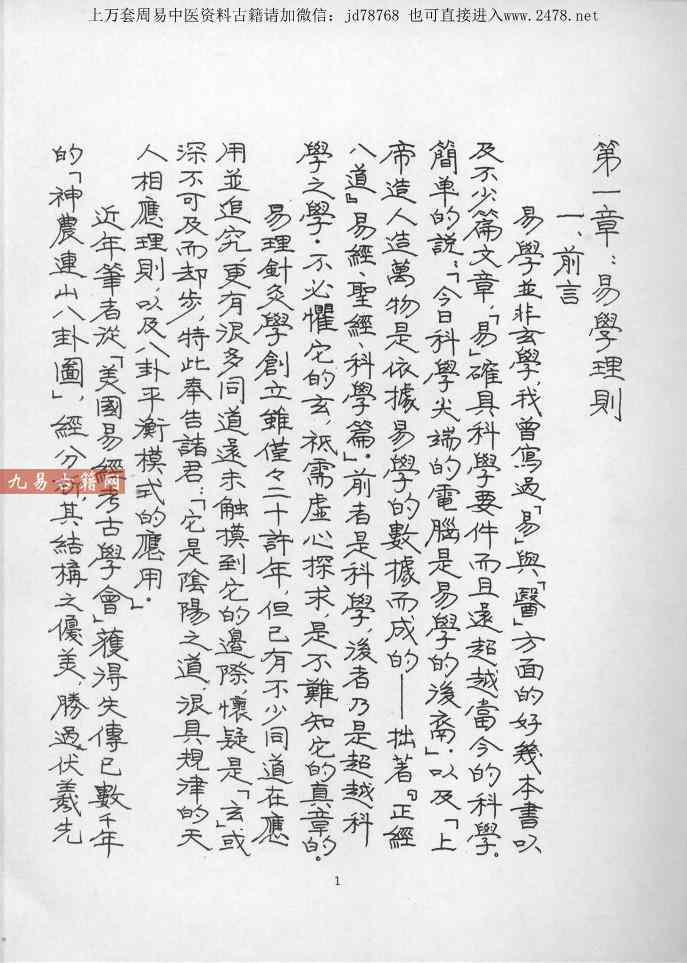 上万套周易中医资料古籍请加微信：jd78768 也可直接进入www.2478.net
第一章：易學理則
一、前言
易學並非玄學，我曾寫過「易」與「醫」方面的好幾本書以
及不少篇文章，「易」確具科學要件而且遠超越當今的科學。
簡单的說：「今日科學尖端的電腦是易學的後裔」．以及「上
帝造人造萬物是依據易學的數據而成的——拙著『正經
八道』易經、聖經、科學篇」．前者是科學，後者乃是超越科
學之學．不必懼它的玄，祇需虛心探求，是不難知它的真章的。
易理針灸學創立雖僅々二十許年，但已有不少同道在應
用並追究，更有很多同道還未触摸到它的邊際，懷疑是「玄」或
深不可及而却步，特此奉告諸君：「它是陰陽之道，很具規律的天
人相應理則，以及八卦平衡模式的應用」．
近年筆者從「美國易經考古學會」獲得失傳已數千年
的「神農連山八卦圖」，經分析其結構之優美，勝過伏羲先
九易古籍网
1